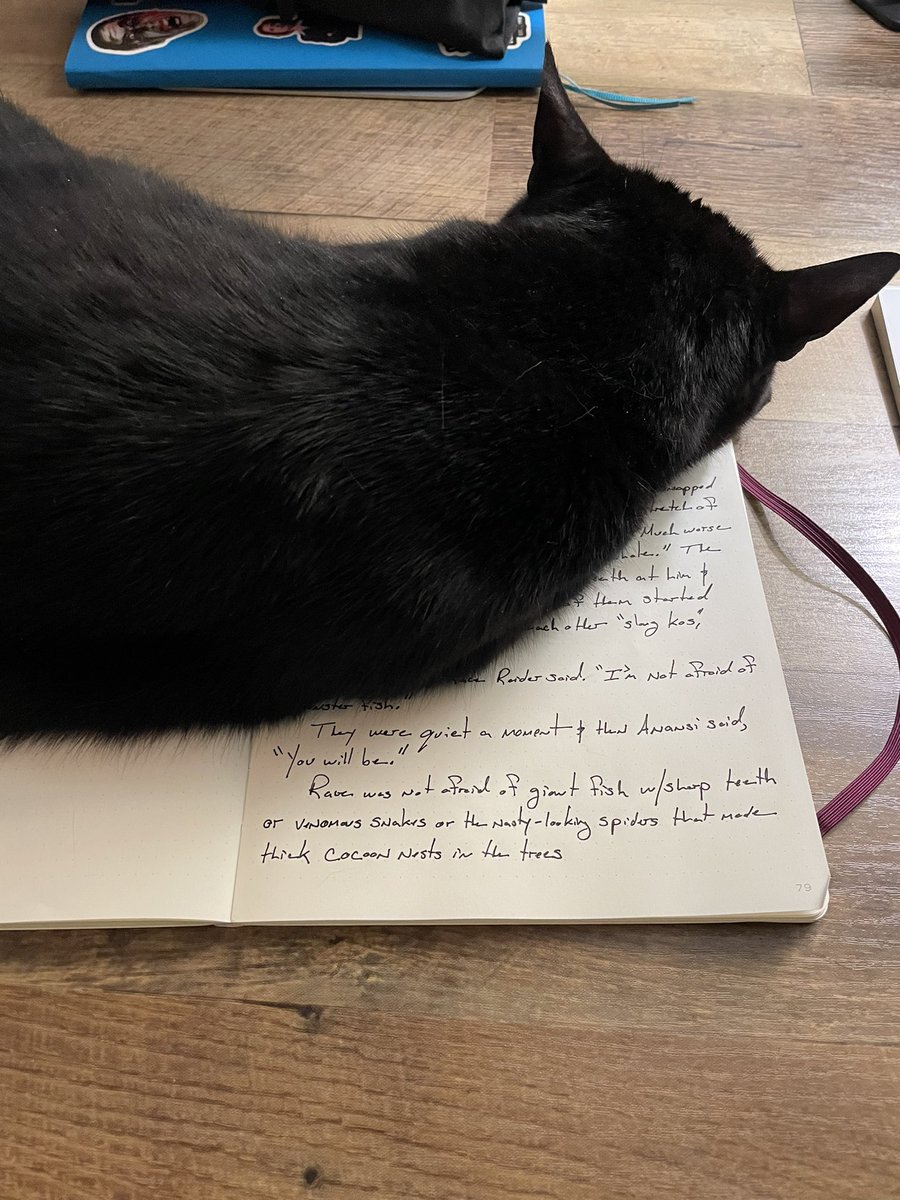 Much worse
The
at him &
of them started
each other "slang kos,"
Raider said. "I'm not afraid of
fish."
They were quiet a moment & then Anansi said,
"You will be."
Raven was not afraid of giant fish w/sharp teeth
or venomous snakes or the nasty-looking spiders that made
thick cocoon nests in the trees
79